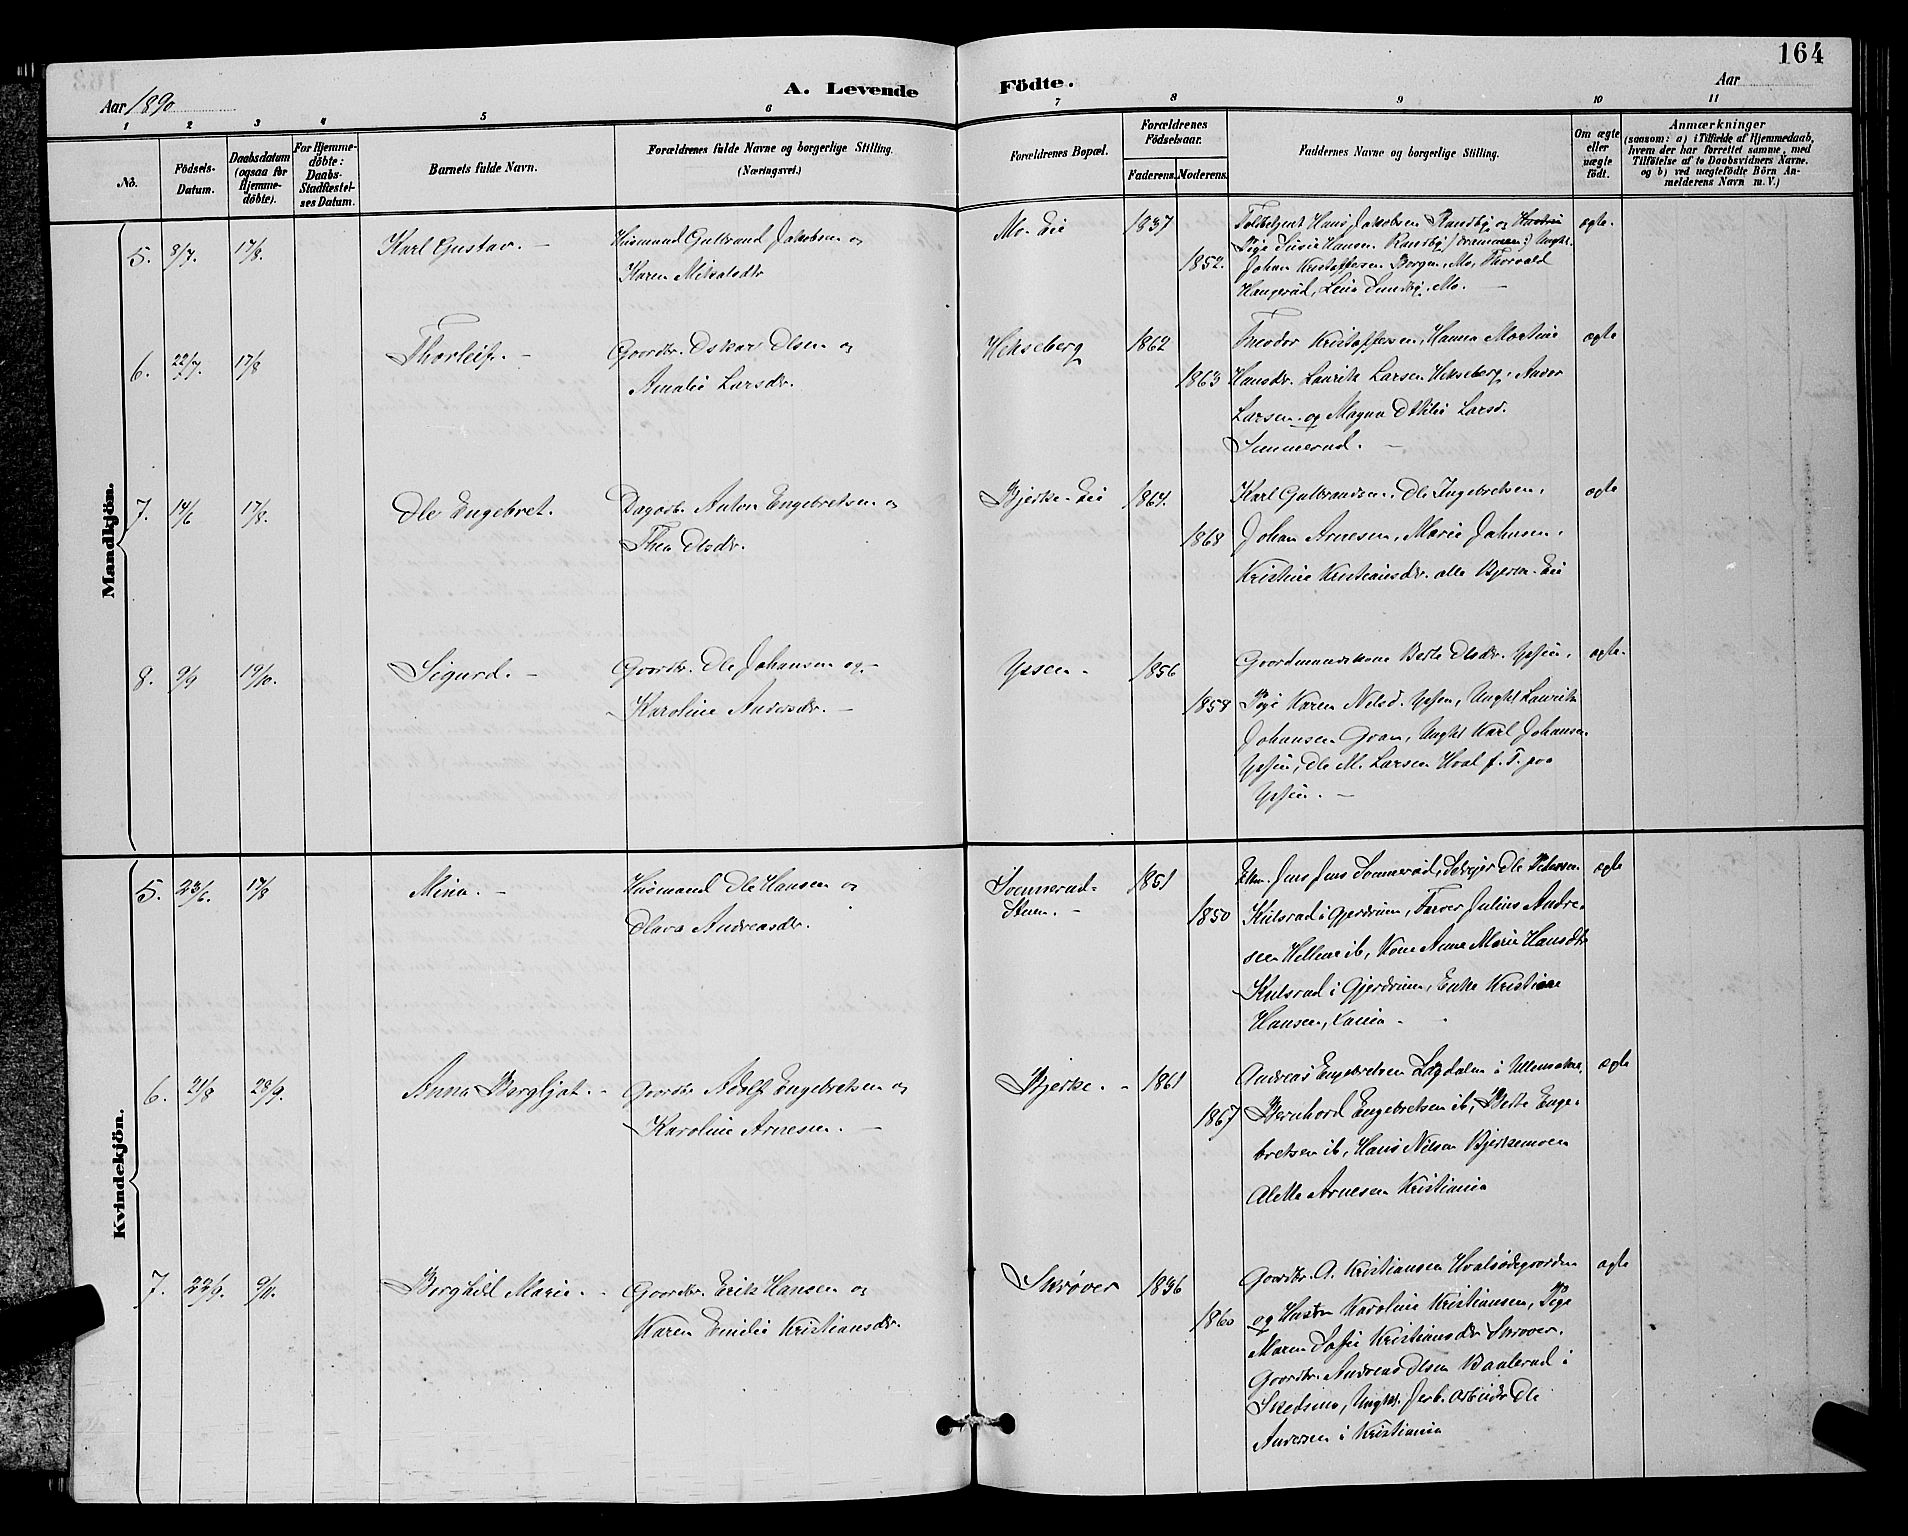 164
Aar 1890
A. Levende Födte.
Aar
1 2 3 4 5 6 7 8 9 10 11
No.
Födsels-Datum.
Daabsdatum (ogsaa for Hjemme-döbte).
For Hjemme-döbte: Daabs-Stadfæstel-ses Datum.
Barnets fulde Navn.
Forældrenes fulde Navne og borgerlige Stilling. (Næringsvei.)
Forældrenes Bopæl.
Forældrenes Födselsaar.
Faderens. Moderens.
Faddernes Navne og borgerlige Stilling.
Om ægte eller uægte födt.
Anmærkninger
(saasom: a) i Tilfælde af Hjemmedaab, hvem der har forrettet samme, med Tilföielse af to Daabsvidners Navne. og b) ved uægtefödte Börn An-melderens Navn m. V.)
Mandkjön.
5. 8/7. 17/8. Karl Gustav. - Husmand Gulbrand Jakobsen og
Karen Mikalsdtr
Mo-Eie 1837 1852.
Toldbetjent Hans Jakobsen Randby og
Pige Susie Hansen Randby / Drammen / Ungkl.
Johan Kristoffersen Borgen, Mo, Thorvald
Haugerud, Lina Sundby, Mo. -
ægte.
6. 22/7. 17/8 Thorleif. - Gaardbr. Oskar Olsen og
Amalie Larsdr.
Hekseberg 1862 1863
Theodor Kristoffersen, Hanna Martine
Hansdr. Laurits Larsen Hekseberg, Ander
Larsen og Magna Otilie Larsd.
Simmerud. -
ægte
7. 14/6 17/8. Ole Engebret. Dagarb. Anton Engebretsen og
Thea Olsdr.
Bjerke-Eie 1864. 1868
Karl Gulbrandsen, Ole Ingebretsen,
Johan Arnesen, Marie Jahnsen,
Kristine Kristiansdr. alle Bjerke-Eie
ægte
8. 9/9 19/10. Sigurd. - Gaardbr. Ole Johansen og -
Karoline Andersdr. -
Ypsen - 1856 1858
Gaardmandskone Berte Olsdr. Ypsen,
Pige Karen Nilsd. Ypsen, Ungkl Laurits
Johansen Gran, Ungkl Karl Johansen
Ypsen, Ole M. Larsen Hval f. T. paa
Ypsen. -
ægte.
Kvindekjön.
5. 23/6. 17/8 Mina. - Husmand Ole Hansen og
Olava Andreasdr.
Sommerud-
Stuen. -
1851 1850
Ekm. Jens Jens Sommerud, Selveier Ole Pedersen
Kulsrud i Gjerdrum, Farver Julius Andre-
sen Hellene ib, Kone Anne Marie Hansdtr
Kulsrud i Gjerdrum, Enke Kristiane
Hansen, Xania -
ægte
6. 21/8 28/9. Anna Bergljot. - Gaardbr Adolf Engebretsen og
Karoline Arnesen. -
Bjerke. - 1861 1867
Andreas Engebretsen Lögdalen i Ullensaker,
Bernhard Engebretsen ib, Berte Enge-
bretsen ib, Hans Nilsen Bjerkemoen
Alette Arnesen Kristiania
ægte
7. 22/9. 9/11. Borghild Marie. - Gaardbr. Erik Hansen og
Karen Emilie Kristiansdr.
Skrøver 1836 1860
Gaardbr. A. Kristiansen Hvalsødegaarden
og Hustru Karoline Kristiansen, Pige
Maren Sofie Kristiansdr Skrøver.
Gaardbr. Andreas Olsen Baalerud i
Skedsmo, Ungkl. Jerb. arbeider Ole
Andersen i Kristiania
ægte